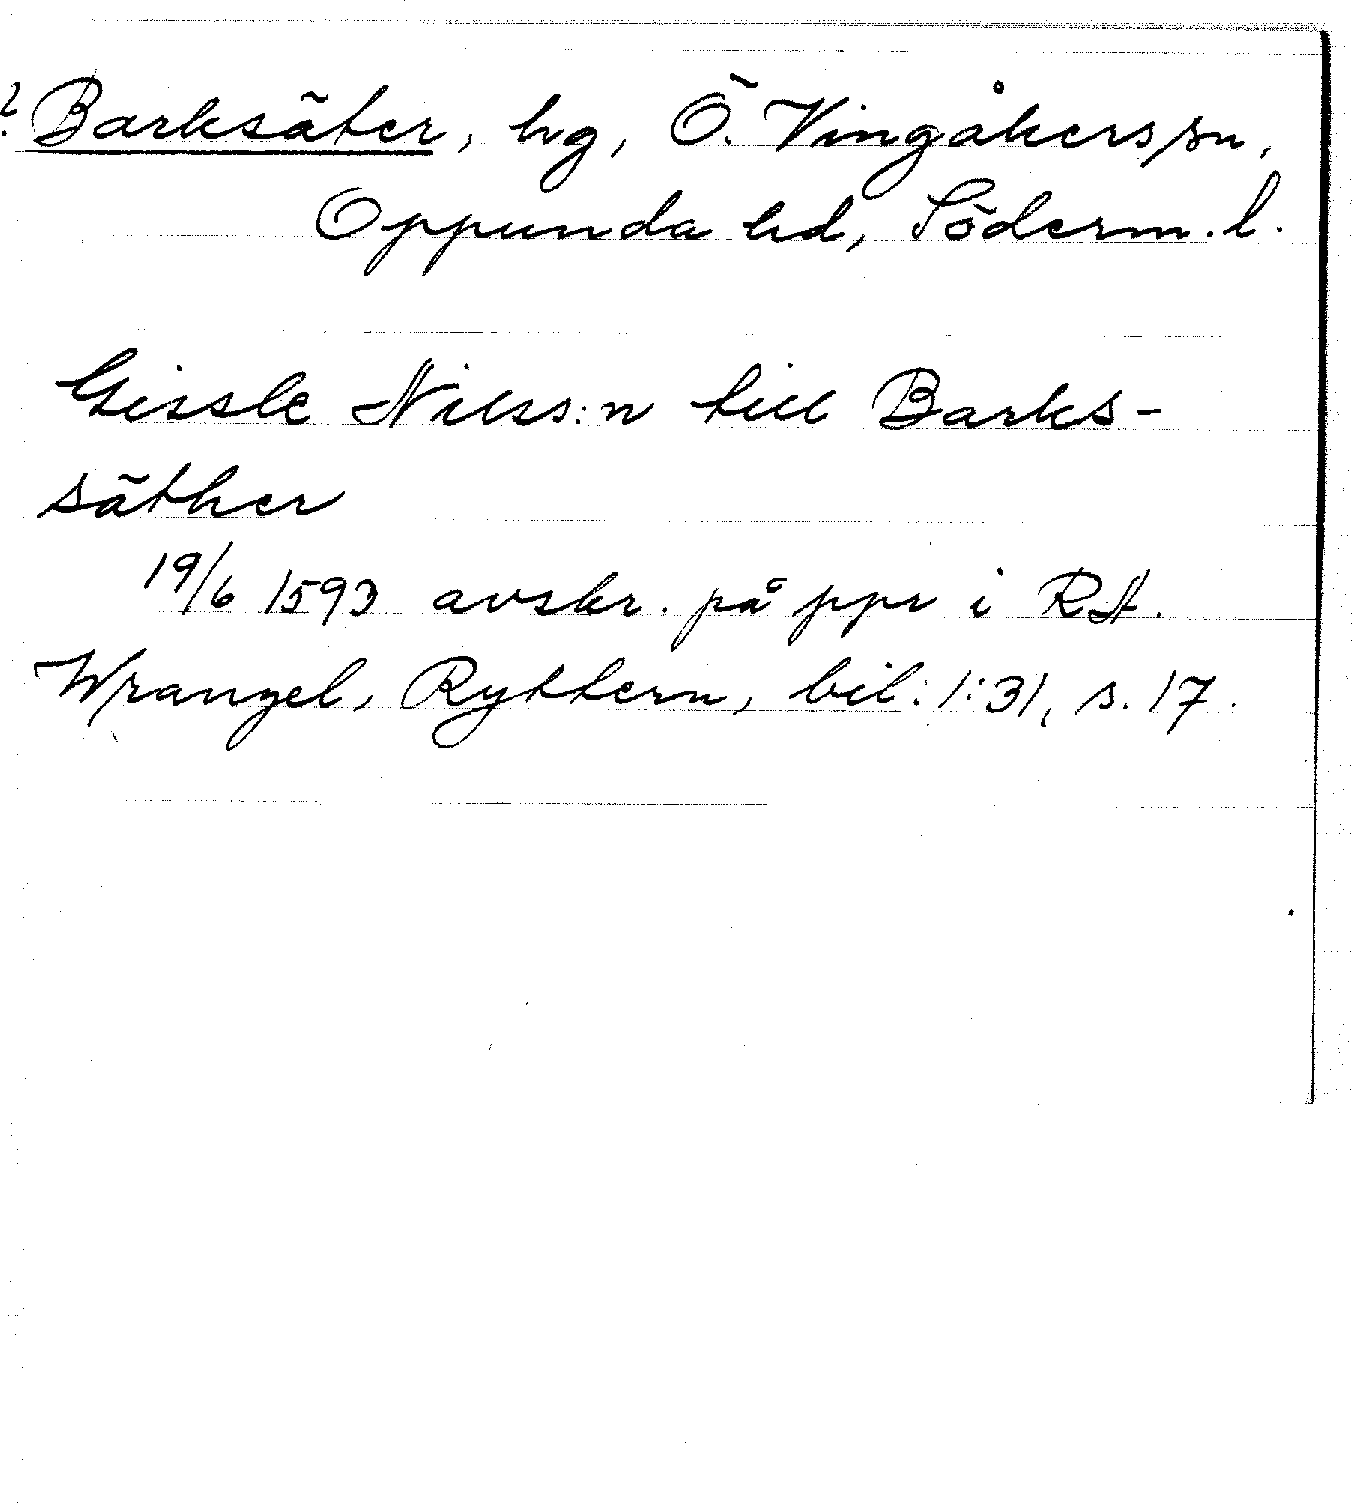 ? Barksäter, hg, Ö. Vingåkers sn,
Oppunda hd, Söderm. l.
Gissle Nilss:n till Barks-
säther
19/6 1593 avskr. på ppr i RA.
Wrangel, Ryttern, bil: 1:31, s. 17.